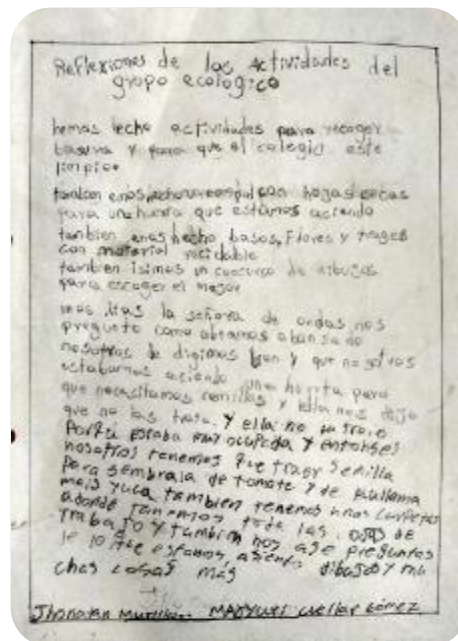 Reflexiones de las actividades del
gropo ecologico
hemos hecho actividades para recoger
basura y para que el colegio este
limpio
tambien emos hecho con hogas secas
para una huerta que estamos aciendo
tambien emos hecho basos, Flores y trages
con material reciclable
tambien isimos un concurso de dibujos
para escoger el mejor
unos dias la señora de ondas nos
pregunto como abiamos abansado
nosotros le digimos bien y que nosotros
estabamos aciendo una huerta para
que necesitamos semillas y ella nos dijo
que no las traia. Y ella no
estaba muy ocupada y entonses
nosotros tenemos que traer semilla
Para sembrala de tomate y de
mais yuca tambien tenemos unas carpetas
adonde tenemos toda las de
trabajo y tambien nos ase preguntas
de lo que estamos asiendo dibujos y mu
chas cosas más
Jhonatan Cuellar Gómez